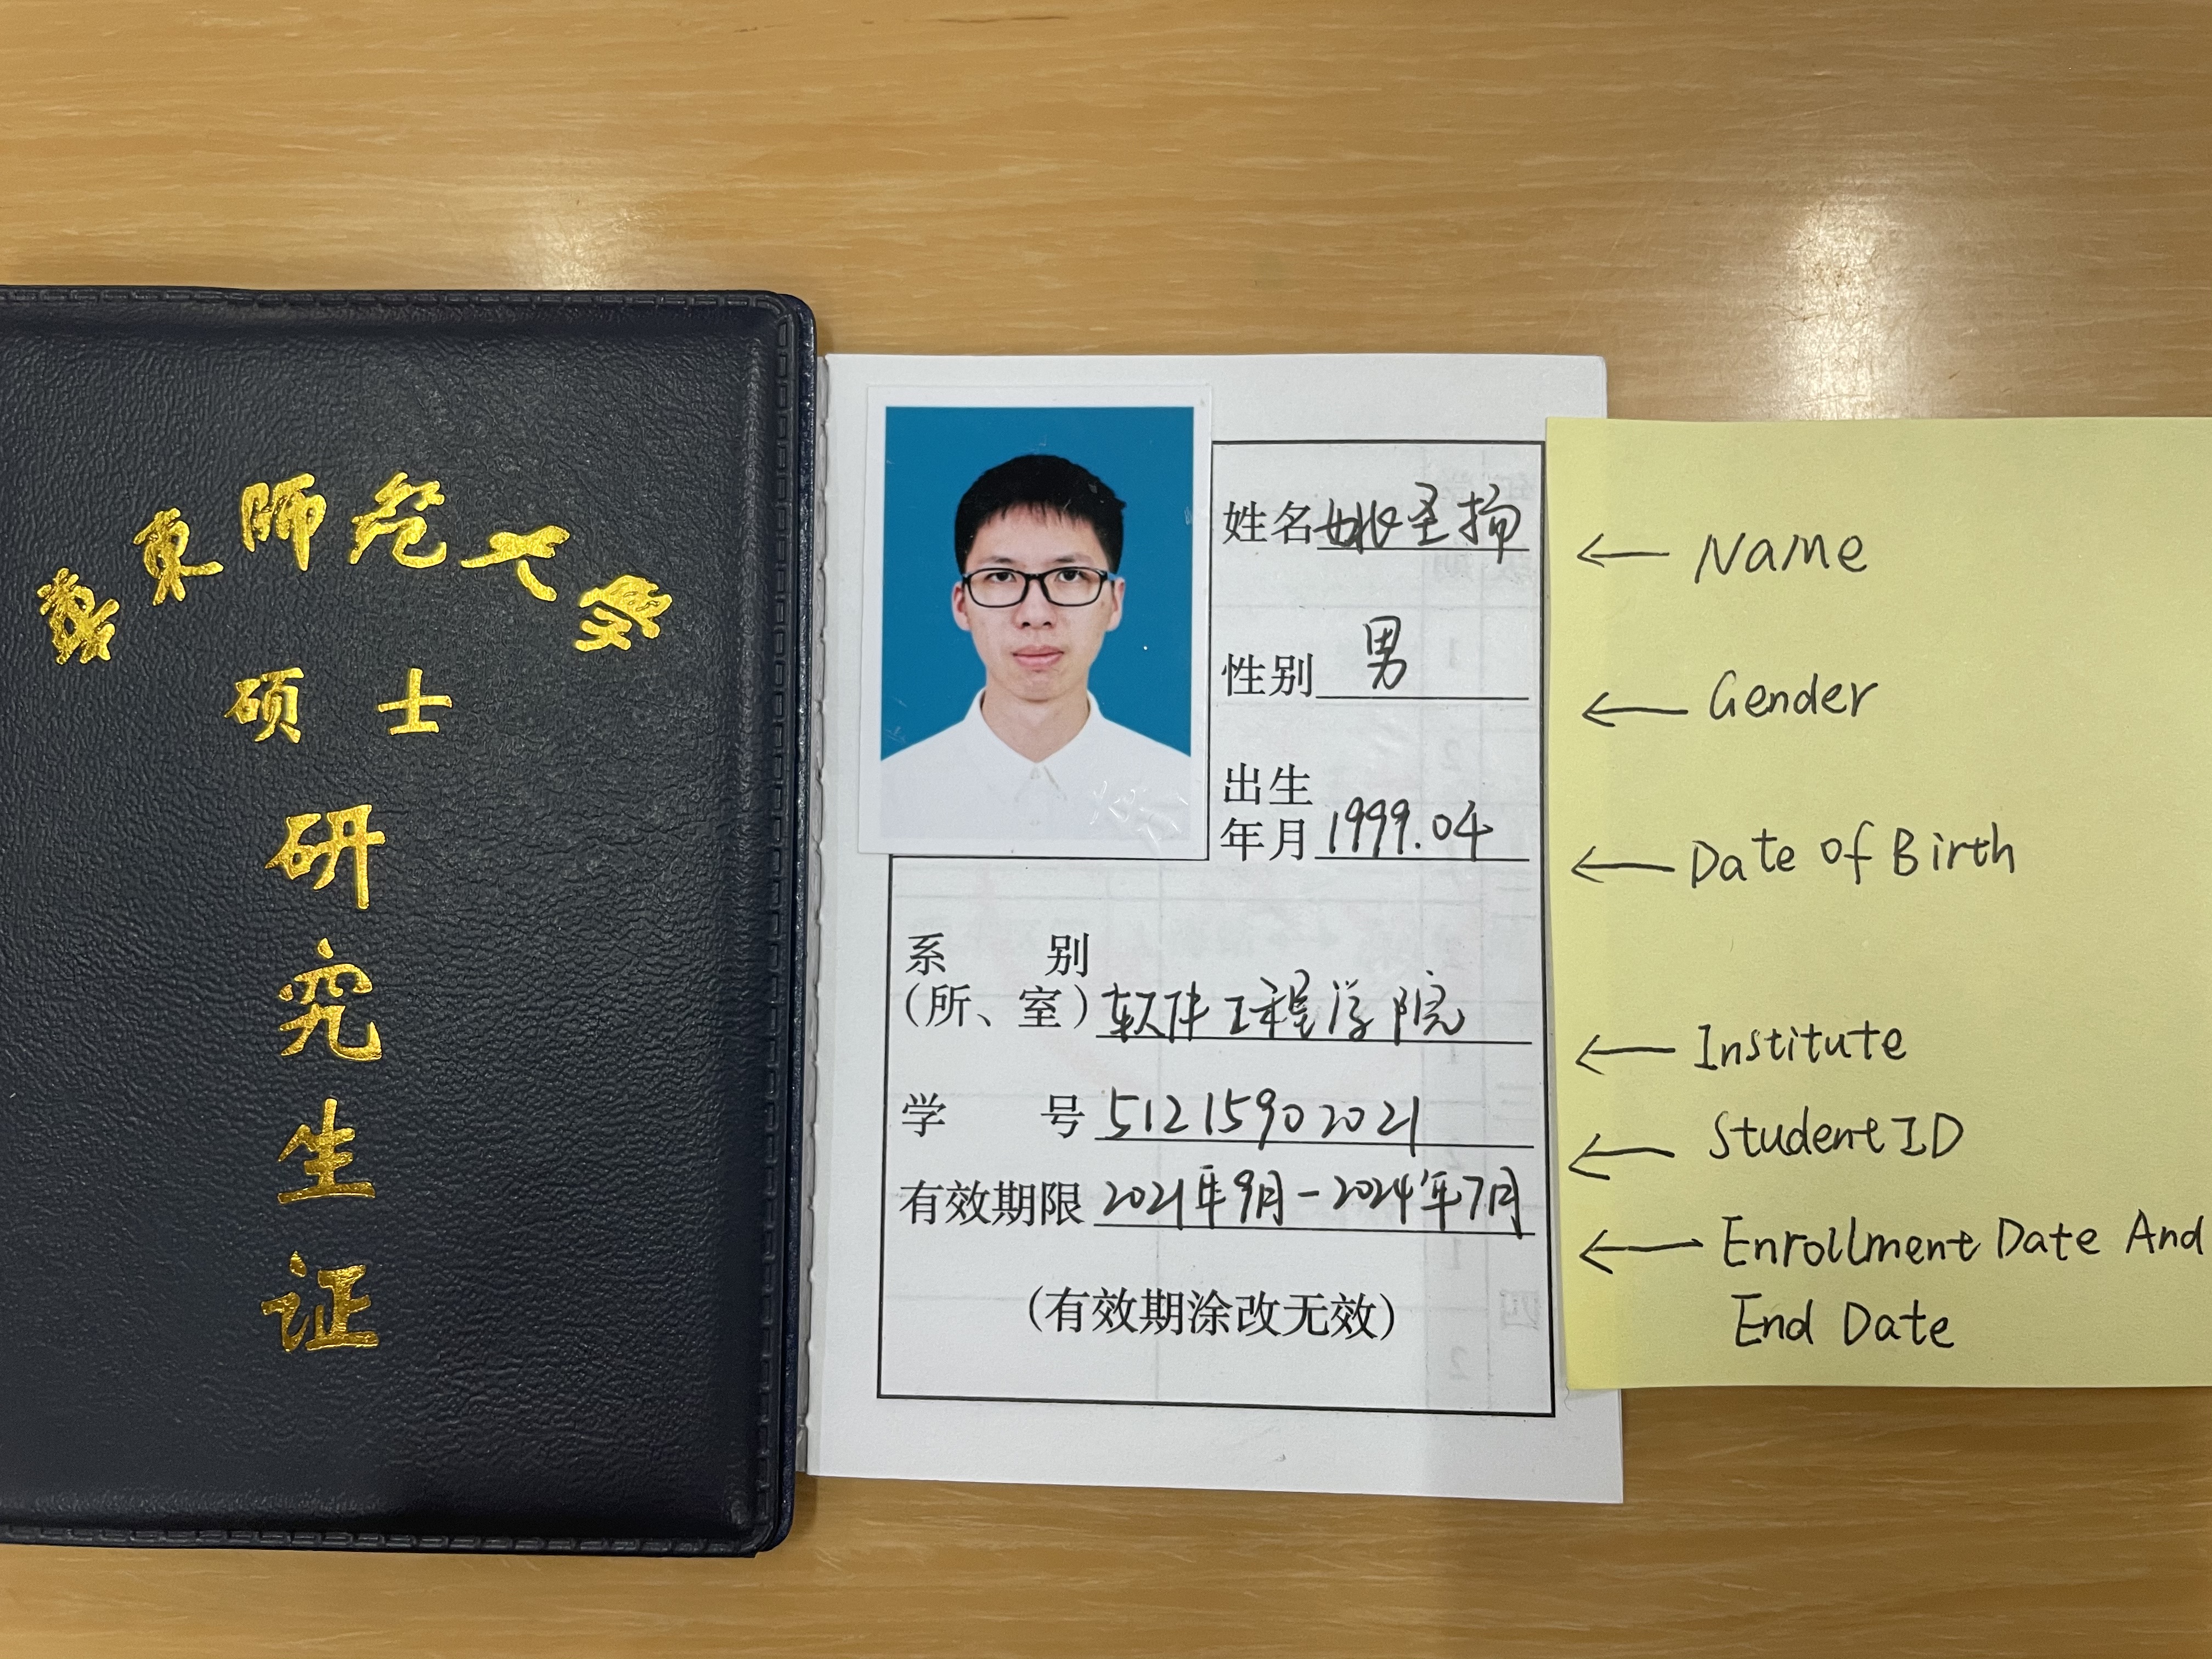 华东师范大学
硕士
研究生证
姓名 姚圣
性别 男
出生
年月 1999.04
系 别
(所、室) 软件工程学院
学 号 51215902021
有效期限 2021年9月-2024年7月
(有效期涂改无效)
← Name
← Gender
← Date of Birth
← Institute
← Student ID
← Enrollment Date And
End Date